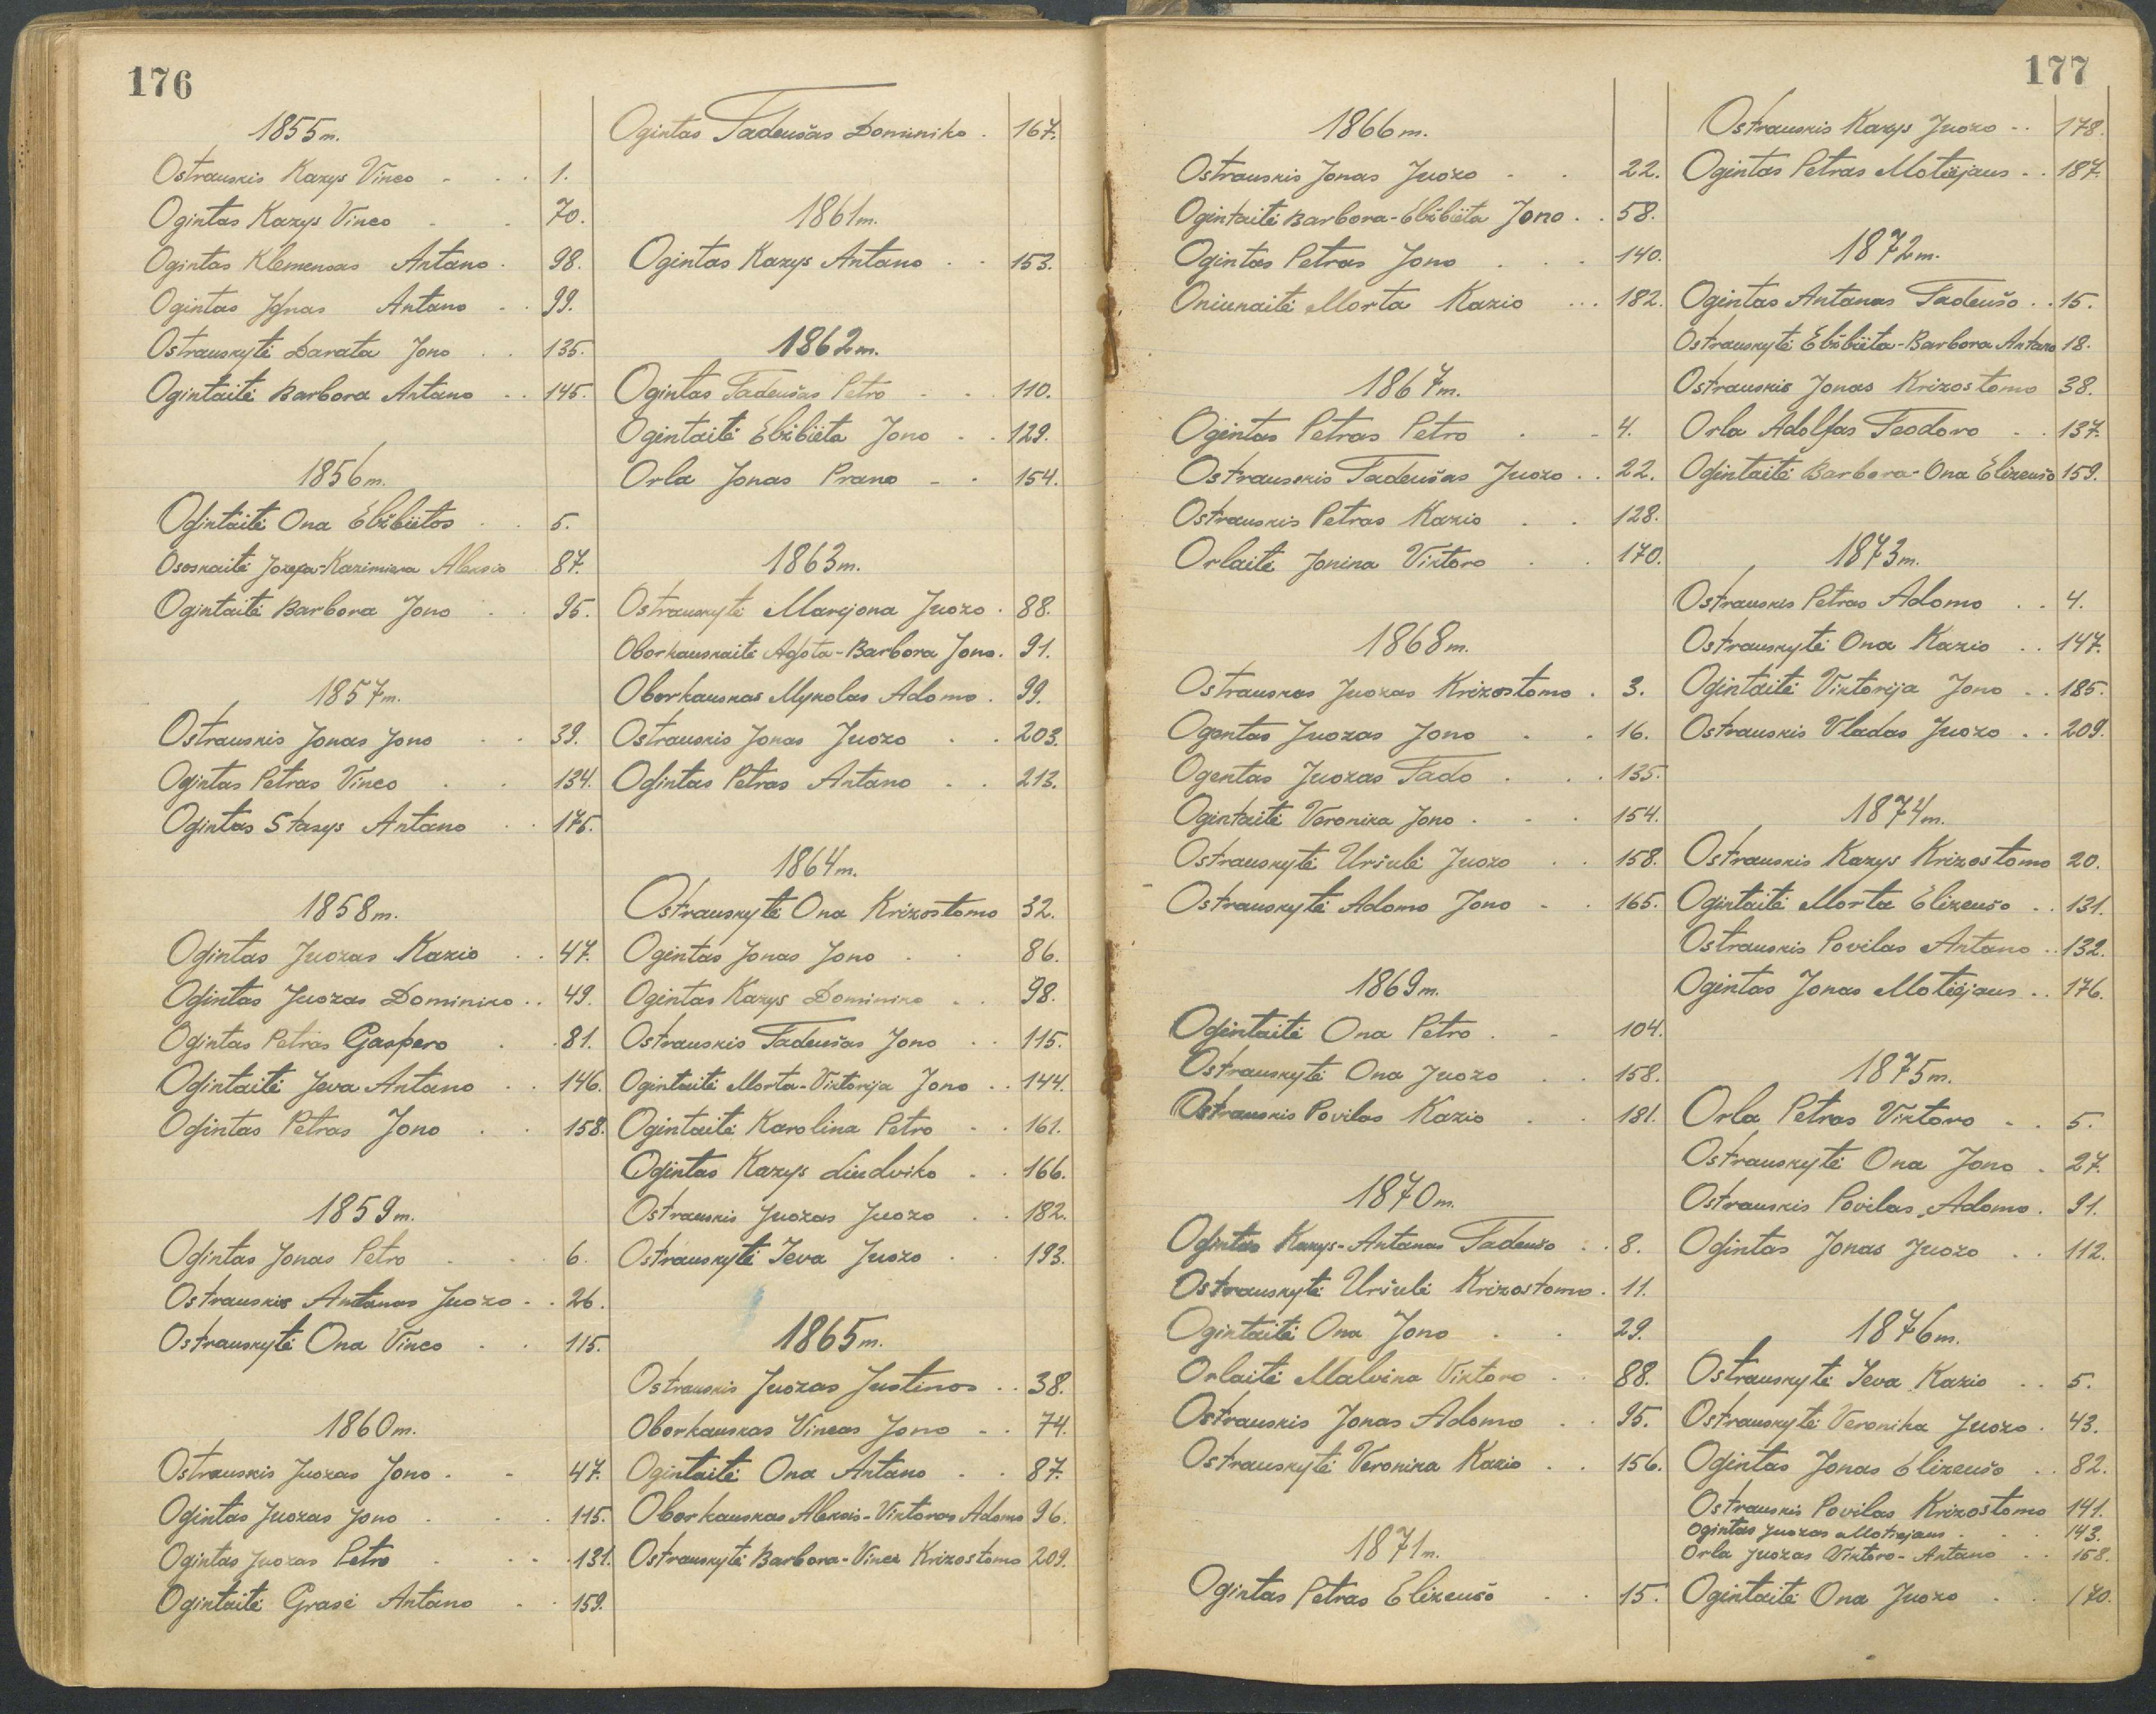 176
1855 m.
Ostrauskis Kazys Vinco - - . 1.
Ogintas Kazys Vinco - . 70.
Ogintas Klemensas Antano . 98.
Ogintas Ignas Antano - . 99.
Ostrauskytė Darata Jono . . 135.
Ogintaitė Barbora Antano . . 145.
1856 m.
Ogintaitė Ona Elžbiėtos . . 5.
Ososkaitė Jozefa-Kazimiera Aleksio 87.
Ogintaitė Barbora Jono . . 95.
1857 m.
Ostrauskis Jonas Jono . . 39.
Ogintas Petras Vinco . . 134.
Ogintas Stasys Antano . . 175.
1858 m.
Ogintas Juozas Kazio . . 47.
Ogintas Juozas Dominiko . . 49.
Ogintas Petras Gaspero . . 81.
Ogintaitė Jeva Antano . . 146.
Ogintas Petras Jono . . 158.
1859 m.
Ogintas Jonas Petro . . 6.
Ostrauskis Antanas Juozo . . 26.
Ostrauskytė Ona Vinco . . 115.
1860 m.
Ostrauskis Juozas Jono . - 47.
Ogintas Juozas Jono . . . 115.
Ogintas Juozas Petro . . . . 131.
Ogintaitė Grasė Antano . . 159.
Ogintas Tadeušas Dominiko . 167.
1861 m.
Ogintas Kazys Antano . . 153.
1862 m.
Ogintas Tadeušas Petro - . 110.
Ogintaitė Elžbiėta Jono . . 129.
Orla Jonas Prano - . 154.
1863 m.
Ostrauskytė Marijona Juozo . 88.
Oborkauskaitė Agota-Barbora Jono . 91.
Oborkauskas Mykolas Adomo . 99.
Ostrauskis Jonas Juozo . . 203.
Ogintas Petras Antano . . 213.
1864 m.
Ostrauskytė Ona Krizostomo 32.
Ogintas Jonas Jono . . 86.
Ogintas Kazys Dominiko . . 98.
Ostrauskis Tadeušas Jono . . 115.
Ogintaitė Morta-Viktorija Jono . . 144.
Ogintaitė Karolina Petro . . 161.
Ogintas Kazys Liudviko . . 166.
Ostrauskis Juozas Juozo . . 182.
Ostrauskytė Ieva Juozo . . 193.
1865 m.
Ostrauskis Juozas Justinos . . 38.
Oborkauskas Vincas Jono . . 74.
Ogintaitė Ona Antano . . 87.
Oborkauskas Aleksis-Viktoras Adomo 96.
Ostrauskytė Barbora-Vincė Krizostomo 209.
177
1866 m.
Ostrauskis Jonas Juozo . . 22.
Ogintaitė Barbora-Elžbiėta Jono . . 58.
Ogintas Petras Jono . . . 140.
Oniunaitė Morta Kazio . . . 182.
1867 m.
Ogintas Petras Petro . - 4.
Ostrauskis Tadeušas Juozo . . 22.
Ostrauskis Petras Kazio . . 128.
Orlaitė Jonina Viktoro . . 170.
1868 m.
Ostrauskas Juozas Krizostomo . 3.
Ogentas Juozas Jono . . 16.
Ogentas Juozas Tado . . . 135.
Ogintaitė Veronika Jono . . . 154.
Ostrauskytė Uršulė Juozo . . 158.
Ostrauskytė Adomo Jono . . 165.
1869 m.
Ogintaitė Ona Petro . - 104.
Ostrauskytė Ona Juozo . . 158.
Ostrauskis Povilas Kazio . . 181.
1870 m.
Ogintas Kazys-Antanas Tadeušo . . 8.
Ostrauskytė Uršulė Krizostomo . 11.
Ogintaitė Ona Jono . . 29.
Orlaitė Malvina Viktoro . . 88.
Ostrauskis Jonas Adomo . . 95.
Ostrauskytė Veronika Kazio . . 156.
1871 m.
Ogintas Petras Elizeušo . . 15.
Ostrauskis Kazys Juozo . . 178.
Ogintas Petras Motiėjaus . . 187.
1872 m.
Ogintas Antanas Tadeušo . . 15.
Ostrauskytė Elžbiėta-Barbora Antano 18.
Ostrauskis Jonas Krizostomo 38.
Orla Adolfas Teodoro . . 137.
Ogintaitė Barbora-Ona Elizeušo 159.
1873 m.
Ostrauskis Petras Adomo . . 4.
Ostrauskytė Ona Kazio . . 147.
Ogintaitė Viktorija Jono . . 185.
Ostrauskis Vladas Juozo . . 209.
1874 m.
Ostrauskis Kazys Krizostomo 20.
Ogintaitė Morta Elizeušo . . 131.
Ostrauskis Povilas Antano . . 132.
Ogintas Jonas Motiėjaus . . 176.
1875 m.
Orla Petras Viktoro . . 5.
Ostrauskytė Ona Jono . 27.
Ostrauskis Povilas Adomo . 91.
Ogintas Jonas Juozo . . 112.
1876 m.
Ostrauskytė Ieva Kazio . . 5.
Ostrauskytė Veronika Juozo . 43.
Ogintas Jonas Elizeušo . . 82.
Ostrauskis Povilas Krizostomo 141.
Ogintas Juozas Motiejaus . . . 143.
Orla Juozas Viktoro-Antano . . 158.
Ogintaitė Ona Juozo . . 170.